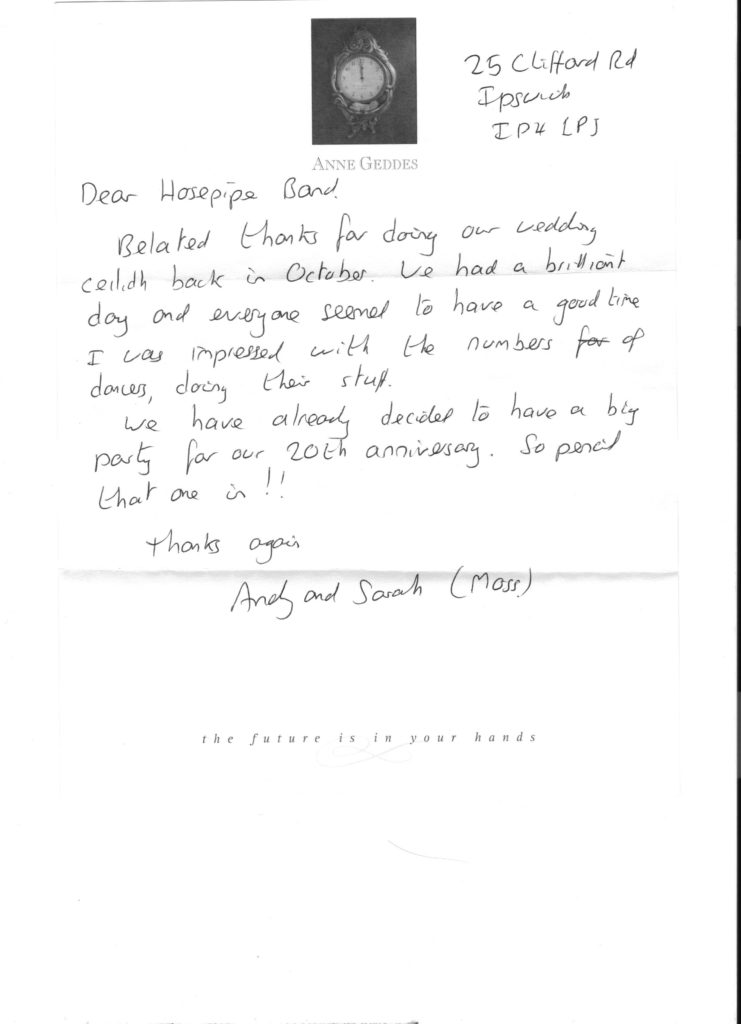 25 Clifford Rd
Ipswich
IP4 1PJ
ANNE GEDDES
Dear Hosepipe Band.
Belated thanks for doing our wedding
ceilidh back in October. We had a brilliant
day and everyone seemed to have a good time
I was impressed with the numbers for of
dances, doing their stuff.
We have already decided to have a big
party for our 20th anniversary. So pencil
that one in !!
thanks again
Andy and Sarah (Moss)
the future is in your hands